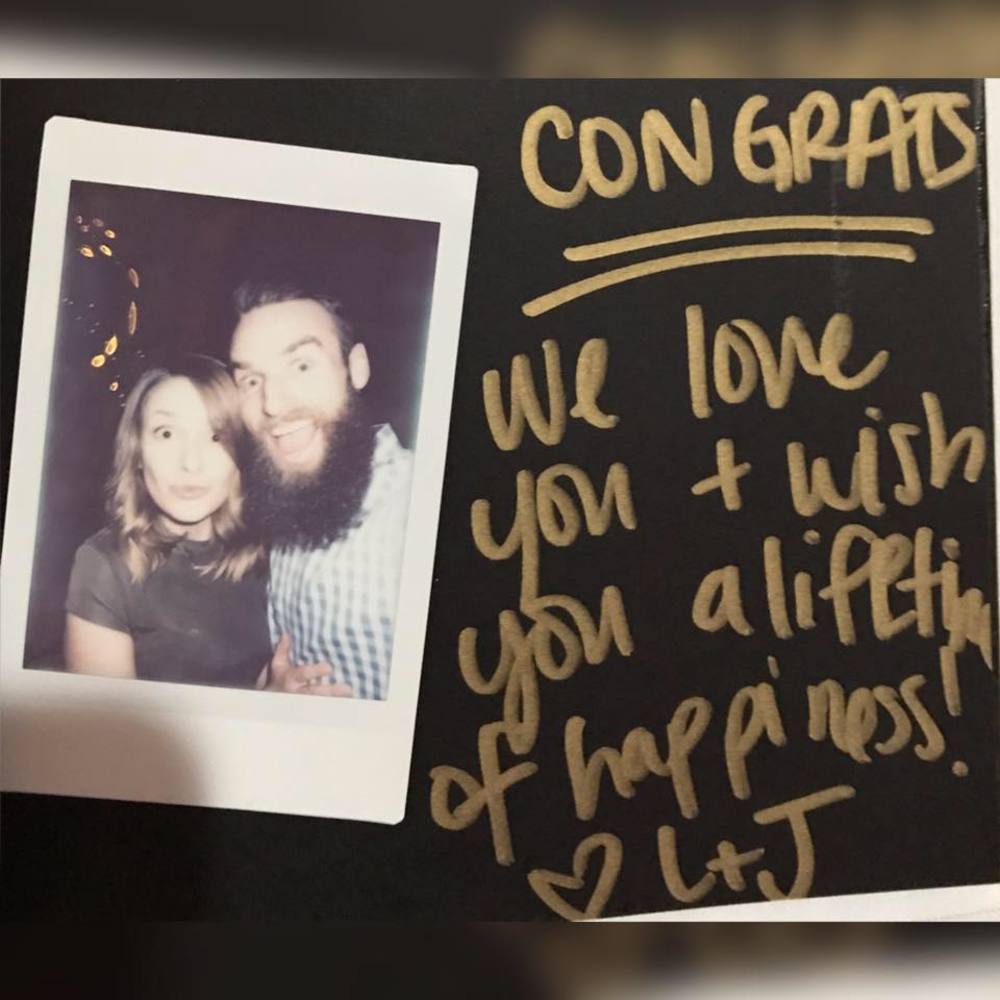 CONGRATS
We love
you + wish
you a lifetime
of happiness!
♡ L+J